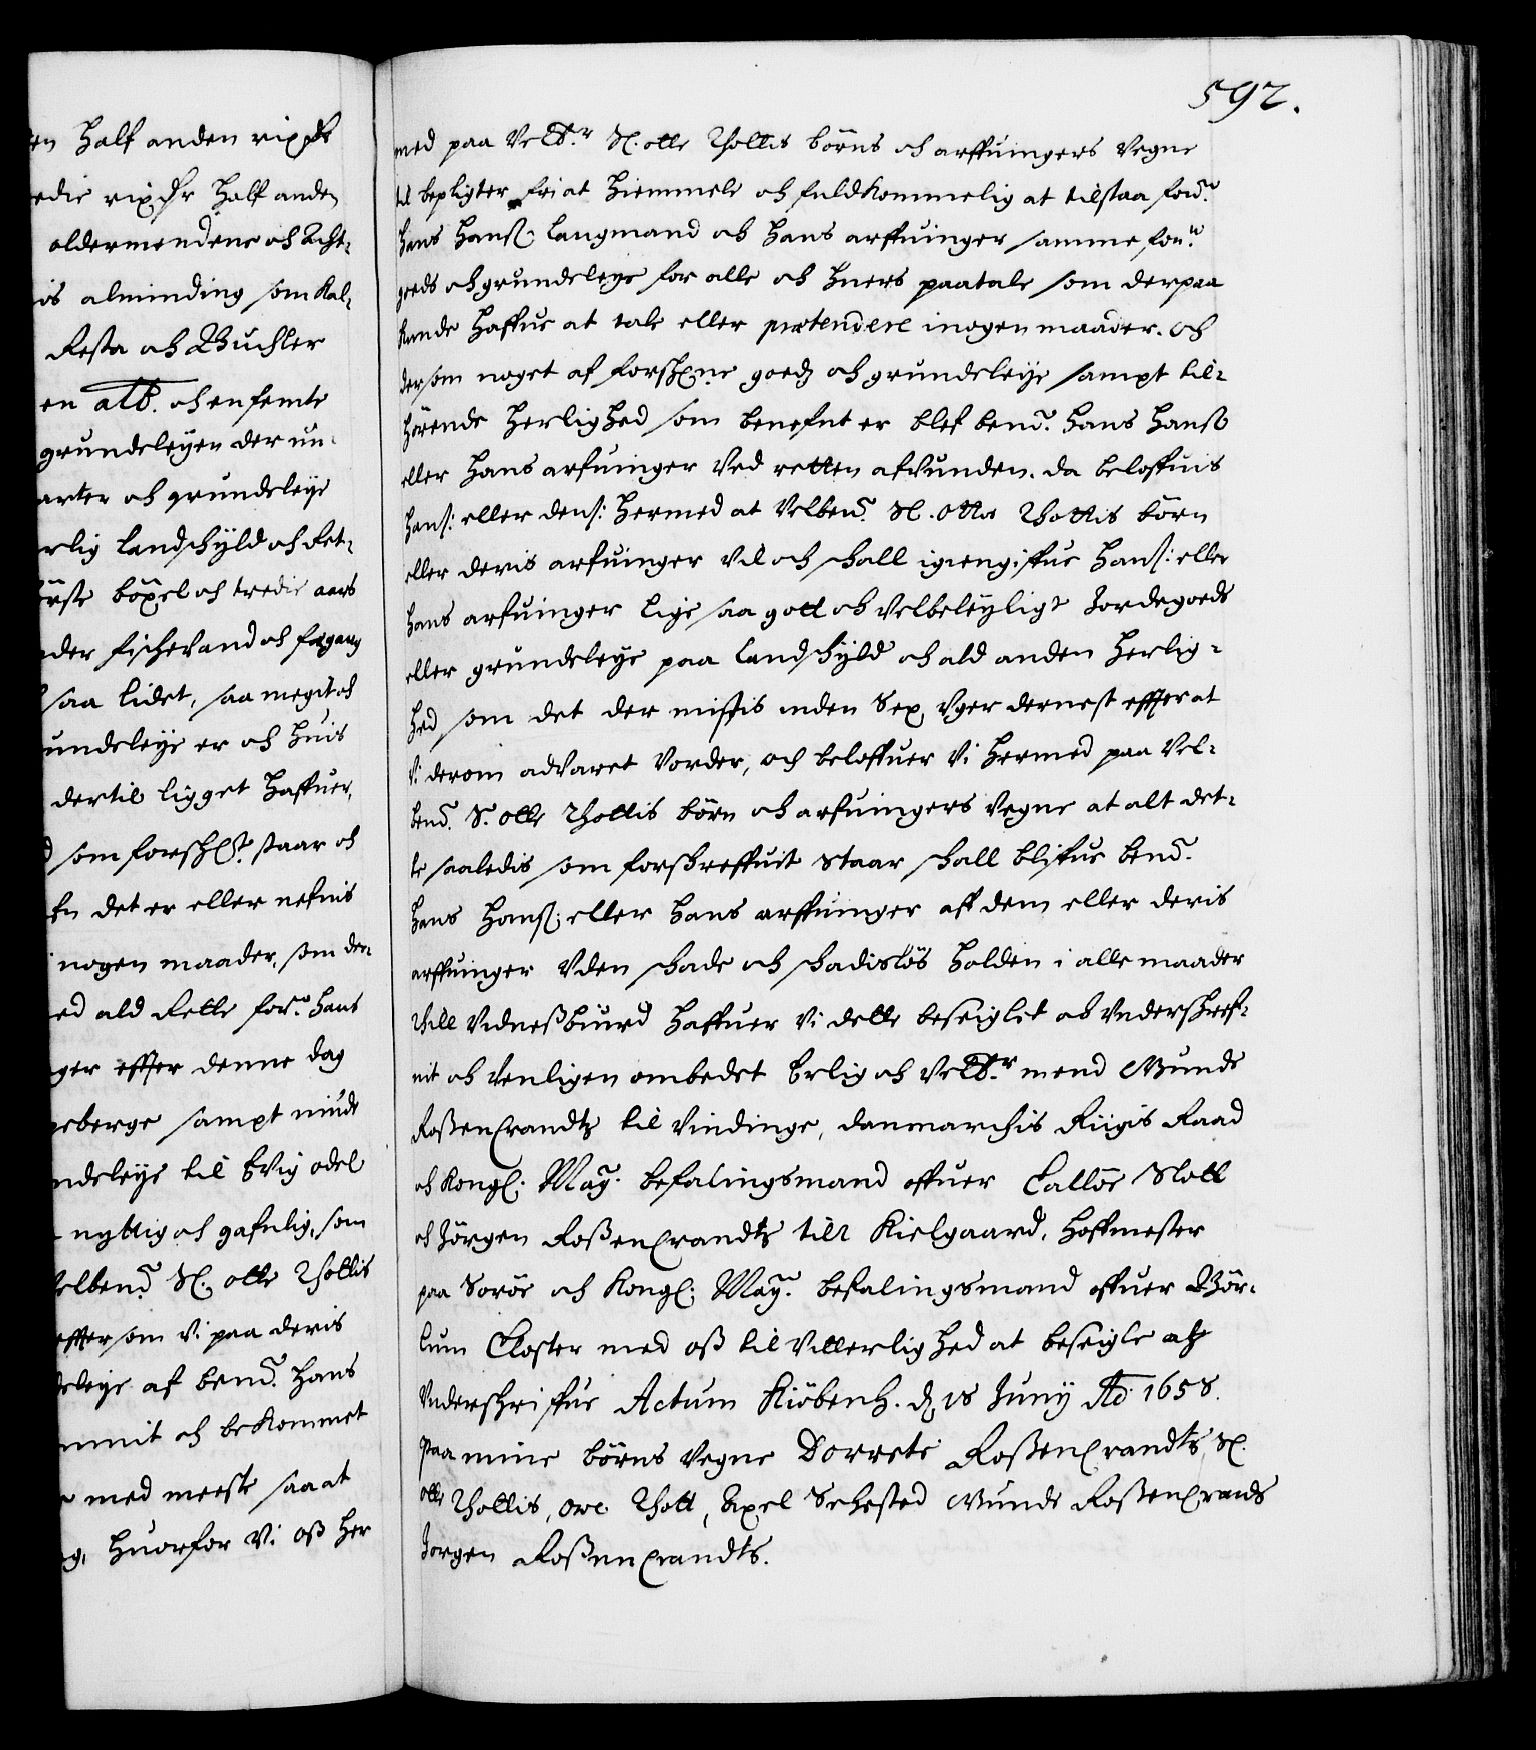 en half anden rixdr
edie rixdr half anden
oldermendene och Acht-
is alminding som kal-
Festa och Buchler
en alb. och en femte
grundeleyen der un-
arter och grundeleye
rlig landschyld och Ret-
örste böxel och tredie aars
der fischevand och fægang
saa lidet, saa megit och
undeleye er och huis
dertil ligget haffuer,
som forschr. staar och
det er eller nefnis
nogen maader, som der-
ed ald Rette for. hans
ger effter denne dag
eberge sampt niude
ndeleye til Evig odel
nyttig och gafnlig, som
elbend. Sl. Otte Thottis
effter som Vi paa deris
eleye af bemd. hans
mmit och bekommet
med meste saa at
huorfor Vi oss her
592.
med paa Velb.r Sl. Otte Thottis börns och arffuingers Vegne
til bepligter fri at hiemmele och fuldkommelig at tilstaa ford.
hans hanss. Langmand och hans arffuinger samme for.ne
goeds och grundeleye for alle och huers paatale som der paa
kunde haffue at tale eller prætendere i nogen maader. och
dersom noget af forschr.ne goeds och grundeleye sampt til-
hörende herlighed som benefnt er blef bemd. Hans Hanss
eller hans arfuinger Ved retten afvunden. da beloffuis
hans: eller dens: hermed at Velbend. Sl. Otte Thottis börn
eller deris arfuinger Vil och schall igiengiffue hans: eller
hans arfuinger lige saa gott och Velbeleyligt Jordegoeds
eller grundeleye paa landschyld och ald anden herlig-
hed som det der mistis inden Sex Uger dernest effter at
Vi derom advaret Vorder, och beloffuer Vi hermed paa Vel-
bend. S. Otte Thottis börn och arfuingers Vegne at alt det-
te saaledis som forschreffuit Staar schall blifue bemd.
Hans Hanss: eller hans arffuinger aff dem eller deris
arffuinger Uden schade och schadislös holden i alle maader
Thill Vidnessbiurd haffuer Vi dette beseiglet och Underschref-
uit och Venligen ombedet Erlig och Velb.r mend Gunde
Rossencrandtz til Vindinge, danmarchis Riigis Raad
och Kongl: May. befalingsmand offuer Calløe Slott
och Jörgen Rossencrandtz till Kielgaard, Hoffmester
paa Soröe och Kongl: May. befalingsmand offuer Bör-
lum Closter med oss til Vitterlighed at beseigle och
Underschriffue Actum Kiöbenh. d. 18 Juny Ao. 1658.
Paa mine börns Vegne Dorrete Rossencrandts, Sl.
Otte Thottis, Ove Thott, Axel Sehested Gunde Rossencrands
Jorgen Rossencrandts.